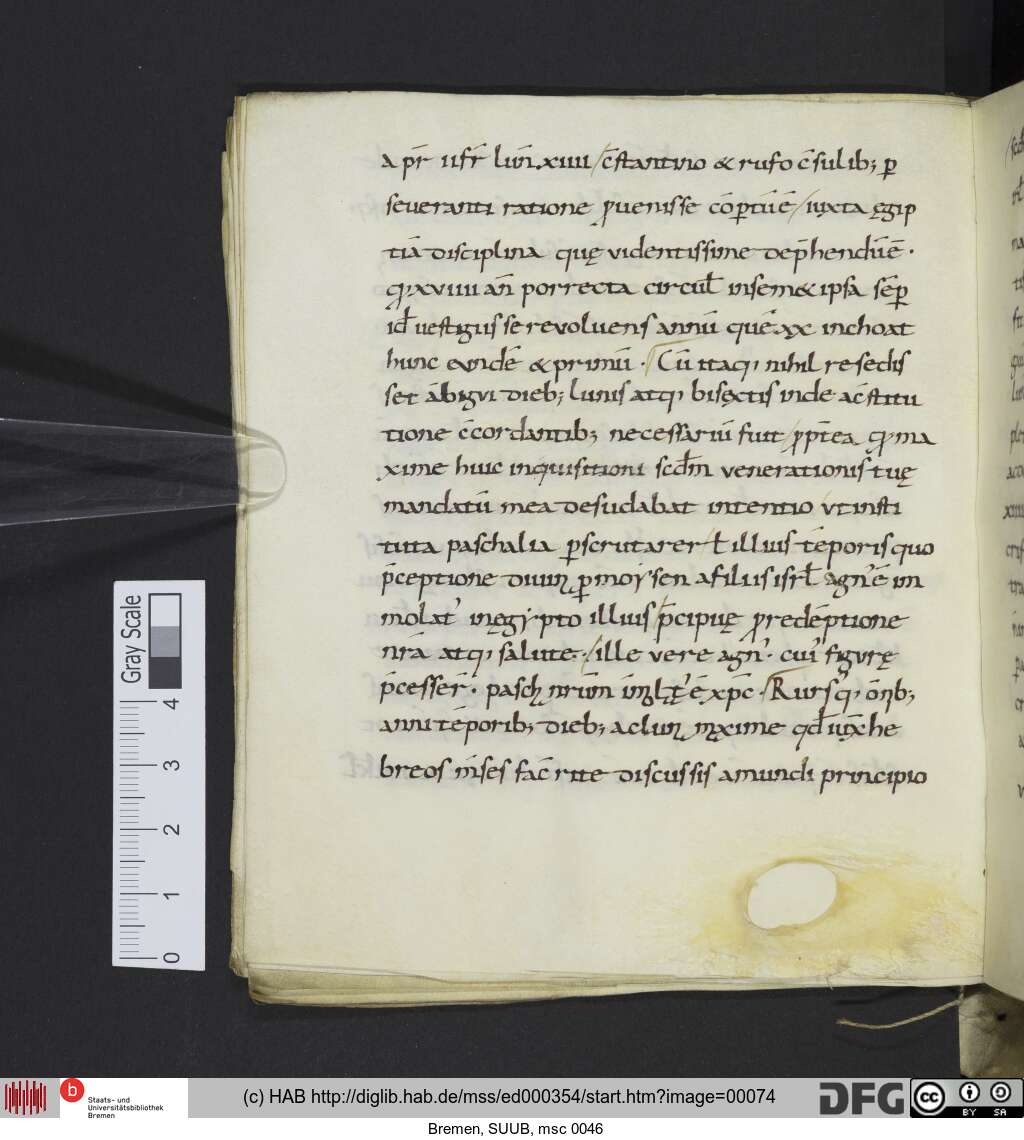 a pr̄ ii fr̄ lun̄ xiiii / c̄stantino & rufo c̄sulib; ꝑ
severanti ratione ꝓvenisse cōꝑtū ē / iuxta ęgip
tiā disciplina quę videntissime dep̄hendūē ·
xviiii an̄ porrecta circul̄ insem& ipsa sēꝑ
vestigiis se revoluens annū quē inchoat
hunc eundē & primū · Cū itaq; nihil resedis
set ābigui dieb; lunis atq; bisextis inde ac̄stitu
tione c̄cordantib; necessariū fuit ꝓpt̄ea ma
xime huic inquisitioni scd̄m venerationis tuę
mandatū mea desudabat intentio ut insti
tuta paschalia ꝑscrutarer illius tēporis quo
p̄ceptione ꝑ moysen a filiis isrl̄ agn' ē im
molat' in ęgypto illius p̄cipuę ꝓ redēptione
nr̄a atq; salute · / ille vere agn' · cui' figurę
p̄cesser̄ · nrūm ē xp̄c · Rursq; ōnib;
anni tēporib; dieb; ac maxime qd̄ iuxͣ he
breos m̄ses fac̄ rite discussis a mundi principio
Gray Scale
4
3
2
1
0
b Staats- und
Universitätsbibliothek
Bremen
(c) HAB http://diglib.hab.de/mss/ed000354/start.htm?image=00074
DFG
cc BY SA
Bremen, SUUB, msc 0046